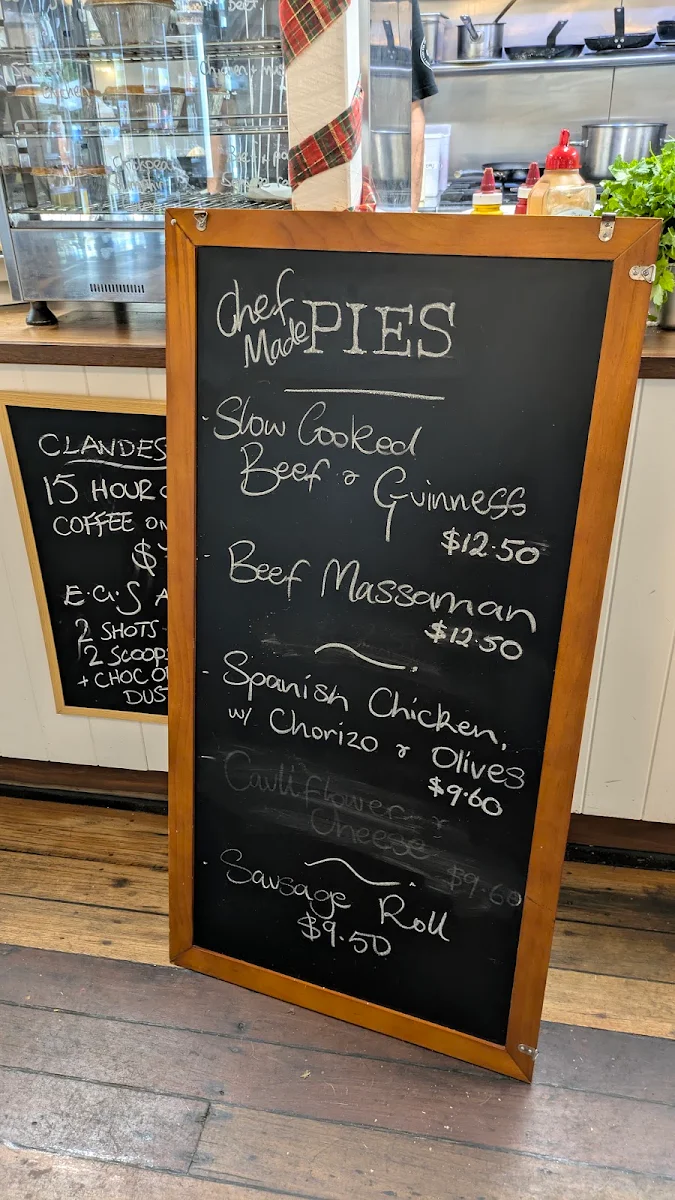 Chef
Made PIES
- Slow Cooked
Beef & Guinness
$12.50
- Beef Massaman
$12.50
- Spanish Chicken,
w/ Chorizo & Olives
$9.60
- Cauliflower &
Cheese
$9.60
- Sausage Roll
$9.50
CLANDES
15 HOUR
COFFEE ON
$
E.G.S A
2 SHOTS
2 SCOOP
+ CHOC O
DUS